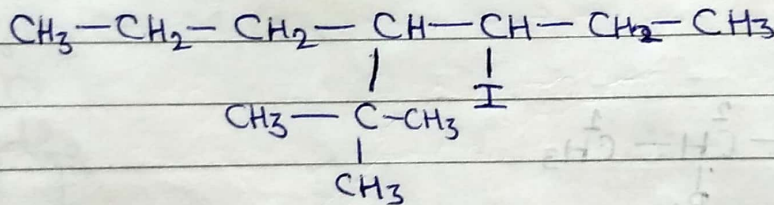 CH₃—CH₂—CH₂—CH—CH—CH₂—CH₃
I
CH₃—C-CH₃
CH₃